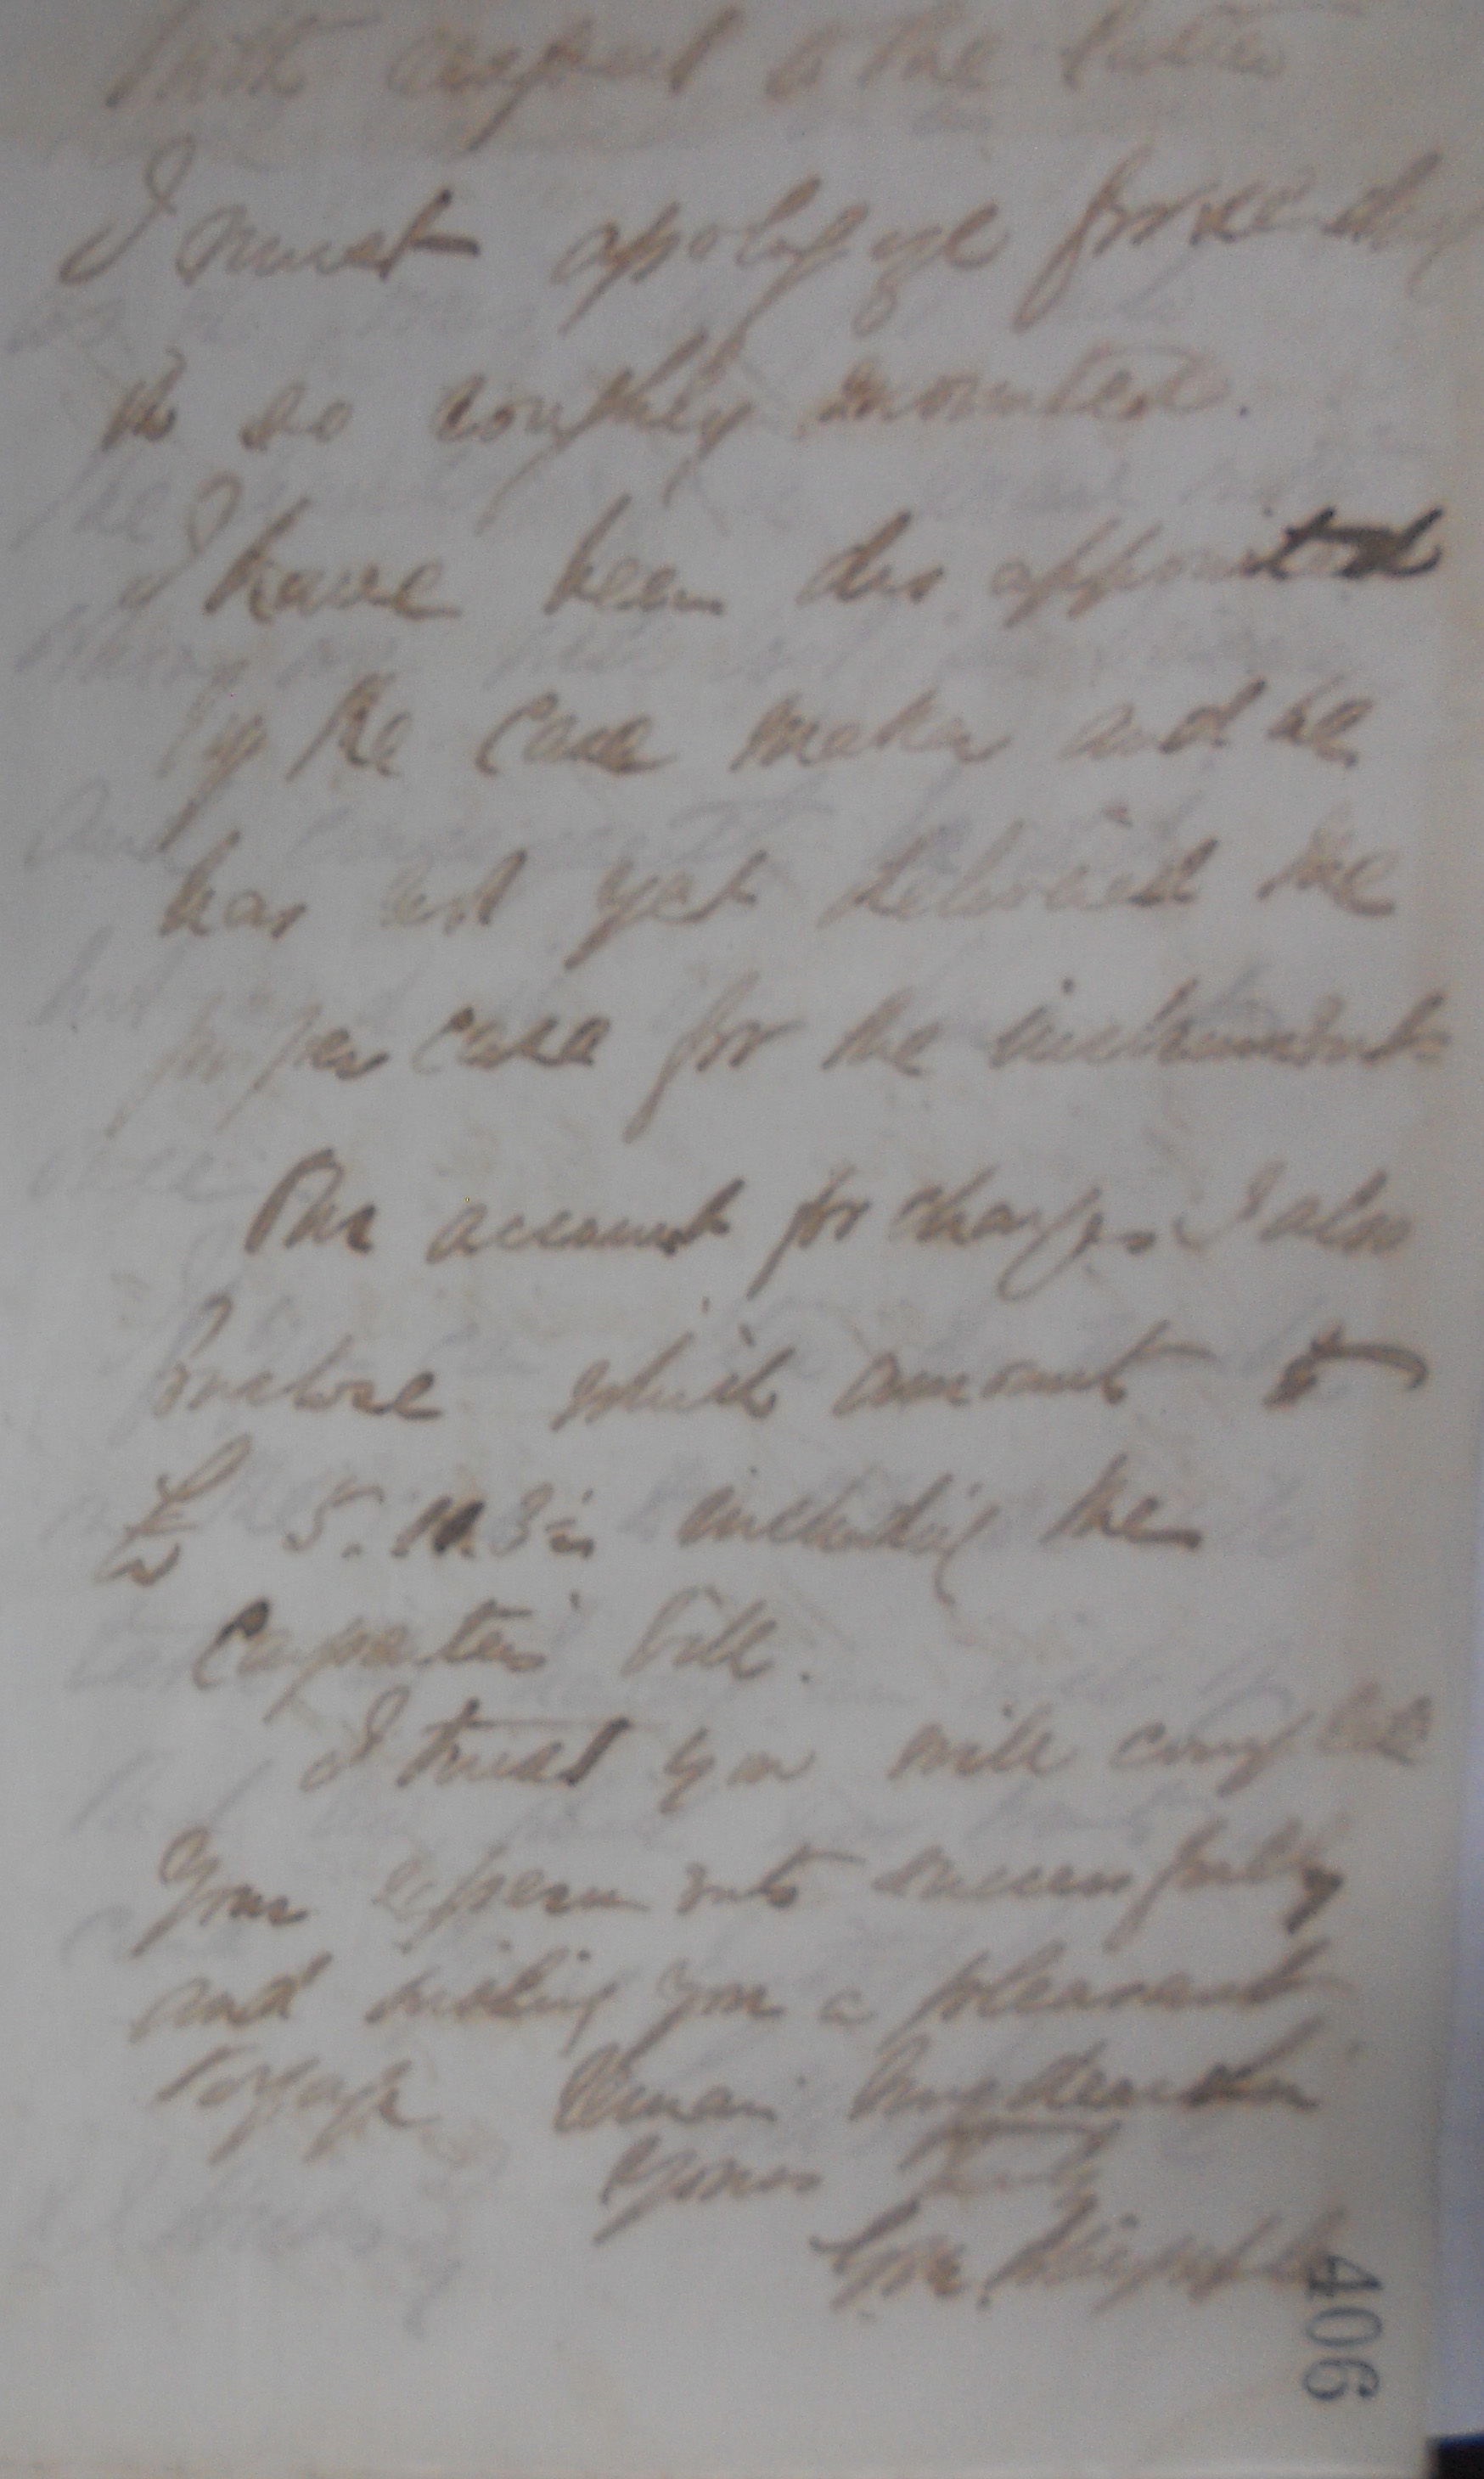 With respect to the latter
I must apologize for
so roughly mounted.
I have been dis appointed
by the Case maker and he
has not yet delivered the
proper case for the instruments
The account for charges I also
Enclose which amount to
£ 5. 10. 3 including the
Carpenters bill.
I trust you will complete
Your experiments successfully
and wishing you a pleasant
voyage Remain My dear Sir
Yours Truly
406